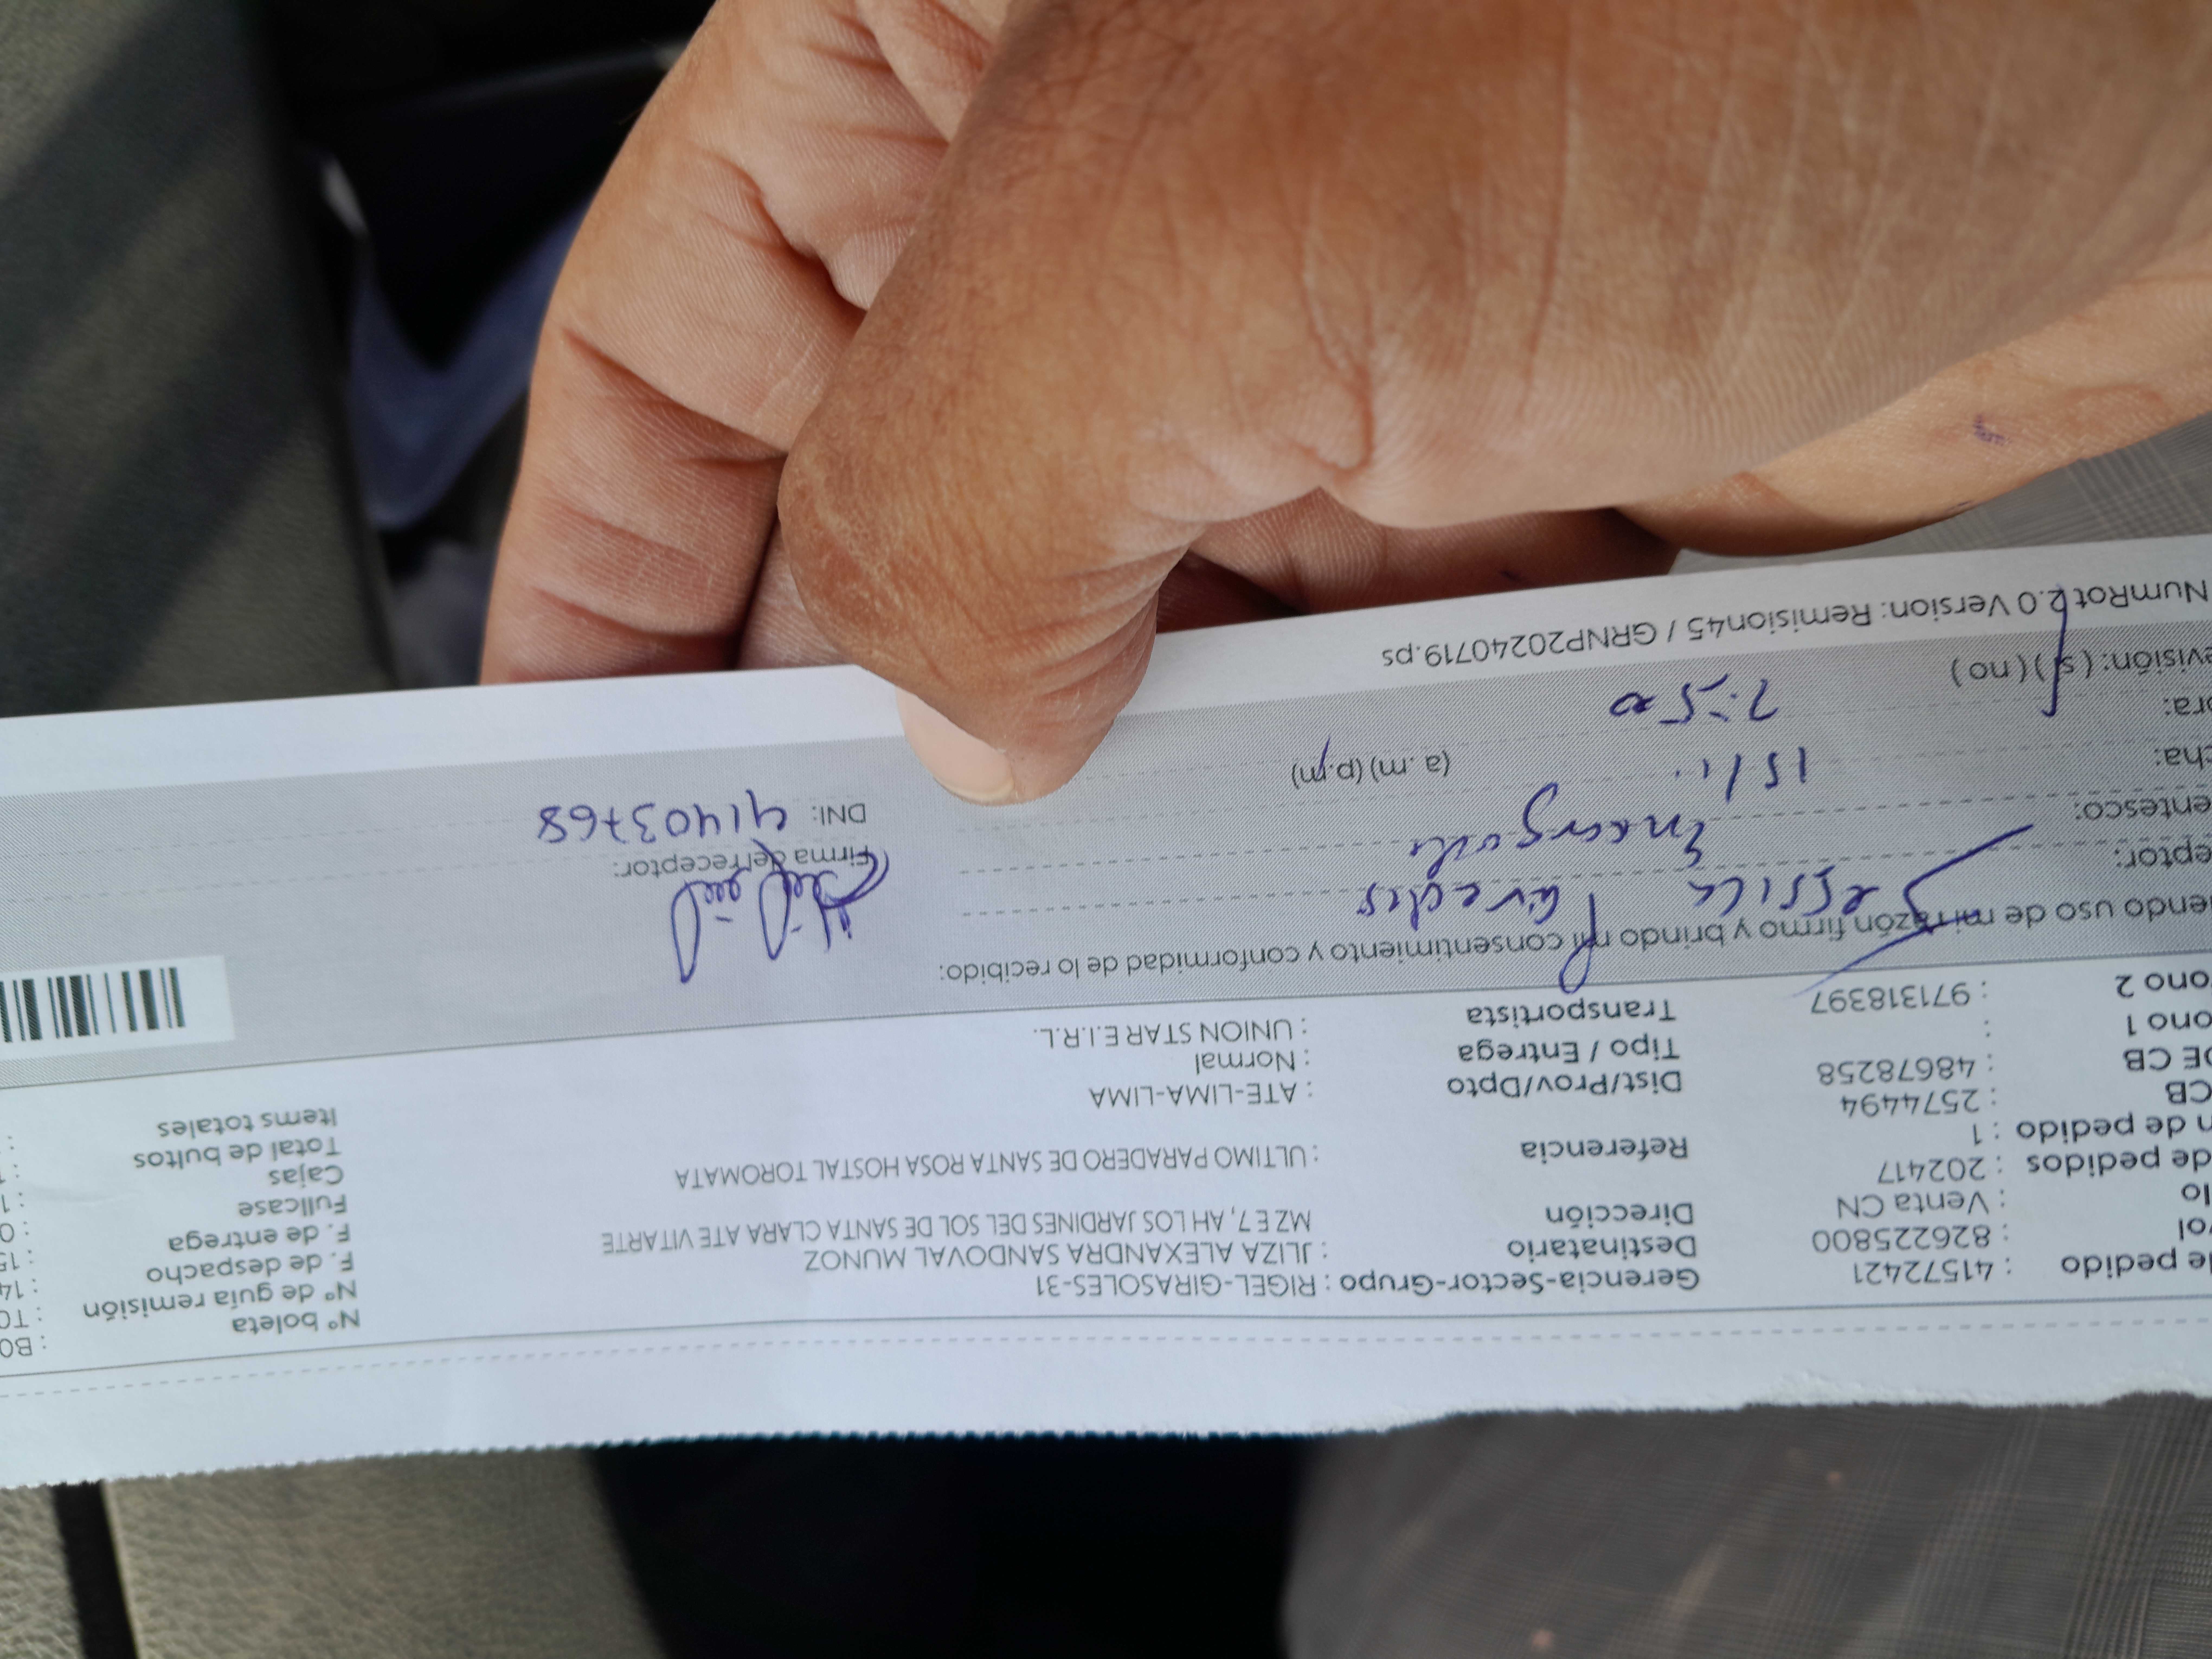 de pedido : 41572421 Gerencia-Sector-Grupo : RIGEL-GIRASOLES-31 Nº boleta : B0
: 826225800 Destinatario : JLIZA ALEXANDRA SANDOVAL MUNOZ Nº de guía remisión : T0
: Venta CN Dirección MZ E 7, AH LOS JARDINES DEL SOL DE SANTA CLARA ATE VITARTE F. de despacho : 14
de pedidos : 202417 F. de entrega : 15
n de pedido : 1 Referencia : ULTIMO PARADERO DE SANTA ROSA HOSTAL TOROMATA Fullcase : 0
CB : 2574494 Cajas : 1
DE CB : 48678258 Dist/Prov/Dpto : ATE-LIMA-LIMA Total de bultos : 1
ono 1 : Tipo / Entrega : Normal Items totales :
ono 2 : 971318397 Transportista : UNION STAR E.I.R.L.
iendo uso de mi razón firmo y brindo mi consentimiento y conformidad de lo recibido:
eptor: Jessica Paredes
entesco: Encargada Firma del receptor:
cha: 15/11 DNI: 41403768
ora: 7:50 (a. m) (p.m)
evisión: ( si ) ( no )
NumRot 2.0 Version: Remision45 / GRNP20240719.ps